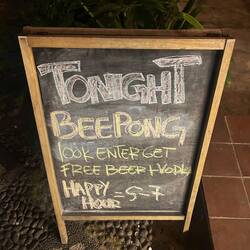 TONIGHT
BEEPONG
100K ENTER GET
FREE BEER + VODK
HAPPY
HOUR = 5-7